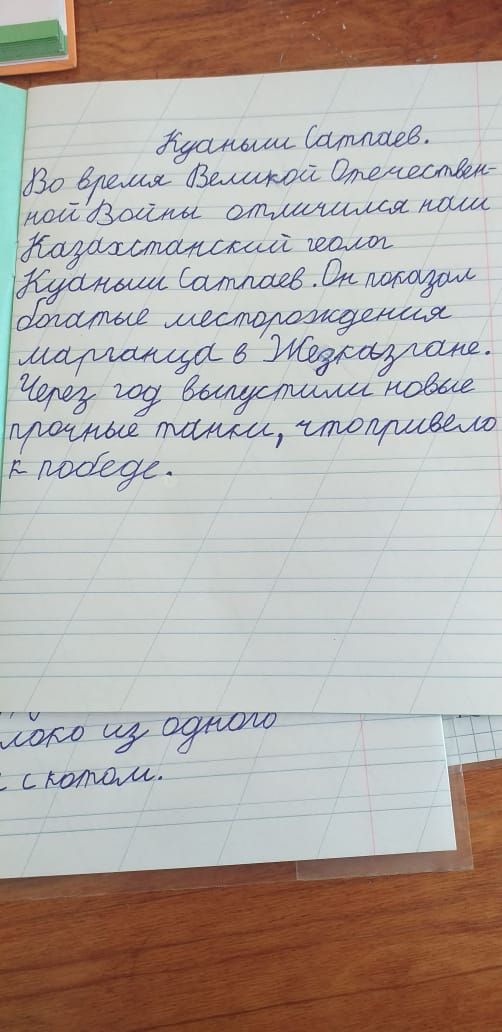 Куаныш Сатпаев.
Во время Великой Отечествен-
ной Войны отличился наш
Казахстанский геолог
Куаныш Сатпаев. Он показал
богатые месторождения
марганца в Жезказгане.
Через год выпустили новые
прочные танки, что привело
к победе.
локо из одного
с котом.